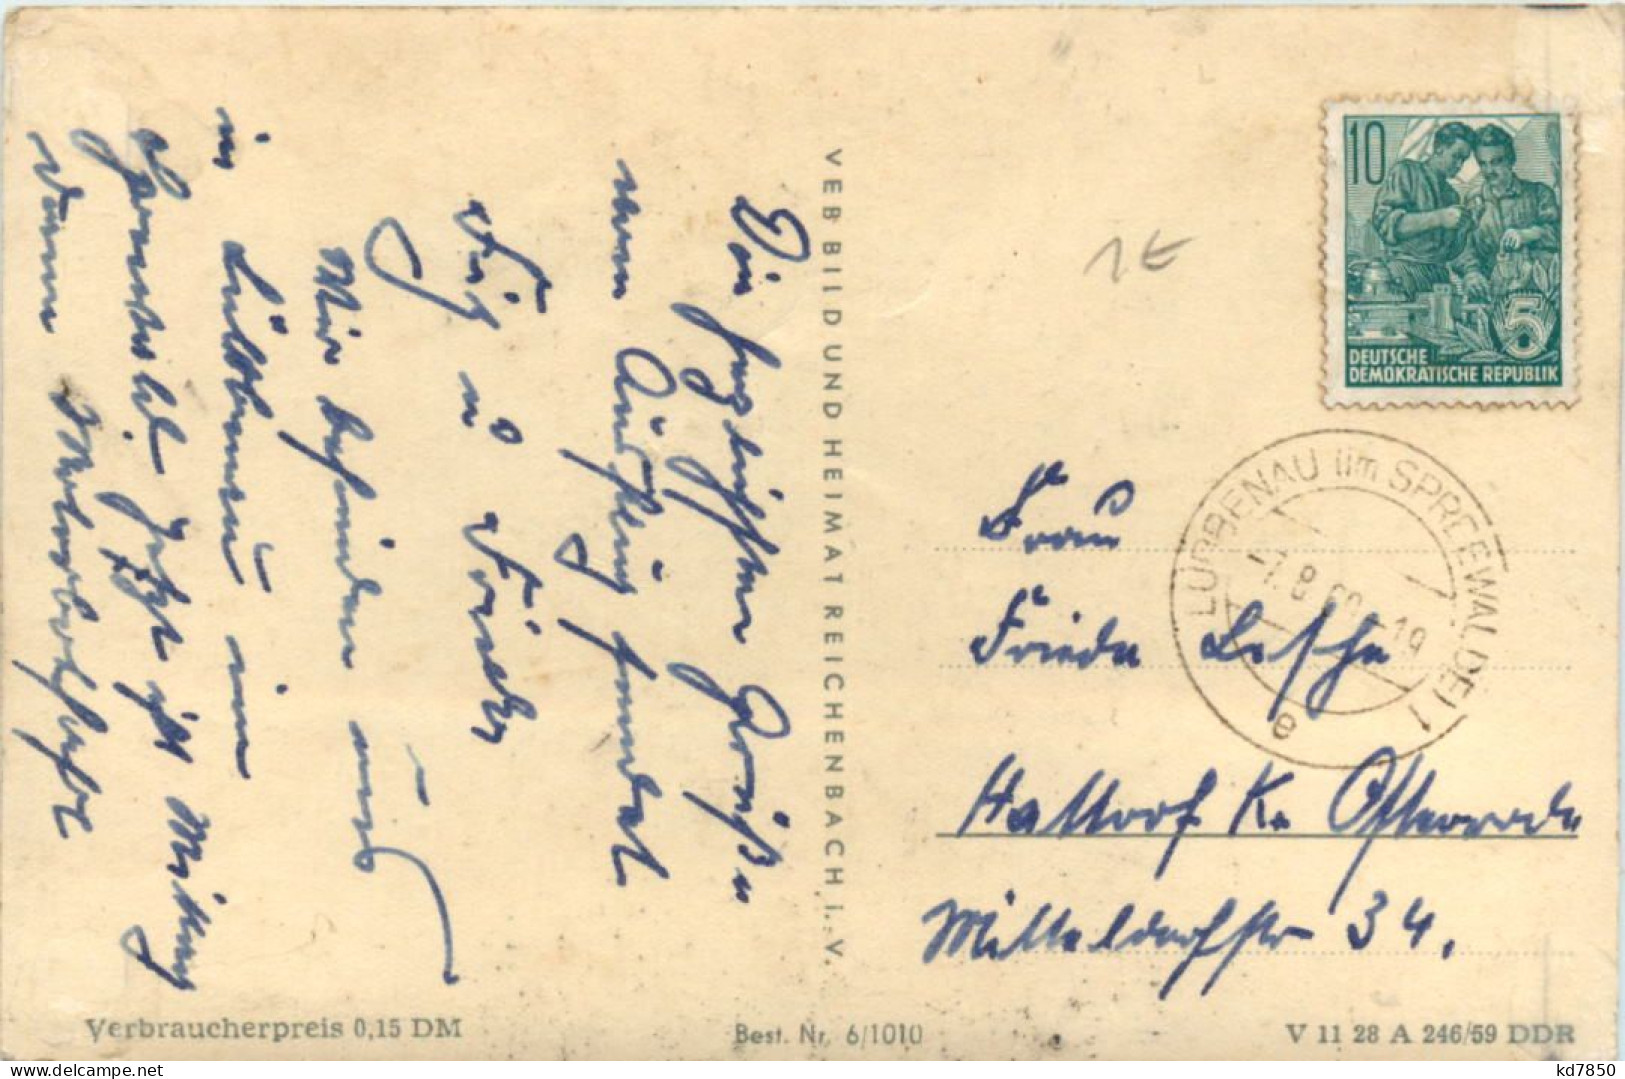 Die herzlichsten Grüße
vom Ausflug sendet
Fritz u. Frieda
Wir befinden uns
in Lübbenau im
Spreewald. Jetzt ist Mittag
dann Motorbootfahrt
VEB BILD UND HEIMAT REICHENBACH I. V.
1 E
10
5
DEUTSCHE
DEMOKRATISCHE REPUBLIK
LÜBBENAU (im SPREEWALDE) 1
8.60 - 19
e
Frau
Frieda Lesche
Hattorf Kr. Osterrode
Mitteldorfstr 34.
Verbraucherpreis 0,15 DM
Best. Nr. 6/1010
V 11 28 A 246/59 DDR
kd7850